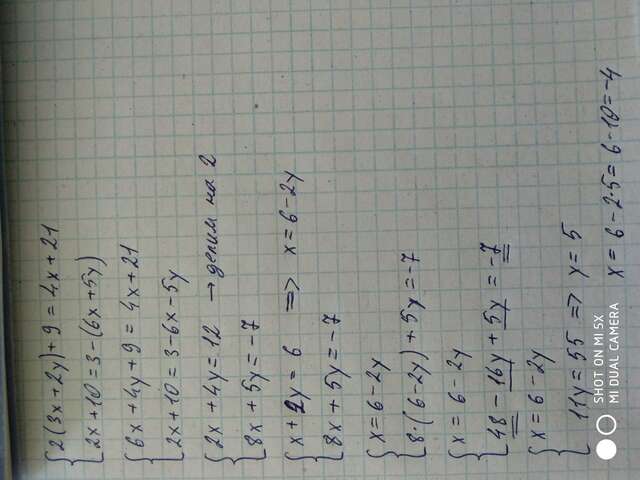 {2(3x+2y)+9=4x+21
{2x+10=3-(6x+5y)
{6x+4y+9=4x+21
{2x+10=3-6x-5y
{2x+4y=12 → делим на 2
{8x+5y=-7
{x+2y=6 => x=6-2y
{8x+5y=-7
{x=6-2y
{8·(6-2y)+5y=-7
{x=6-2y
{48-16y+5y=-7
{x=6-2y
{11y=55 => y=5
x=6-2·5=6-10=-4
SHOT ON MI 5X
MI DUAL CAMERA